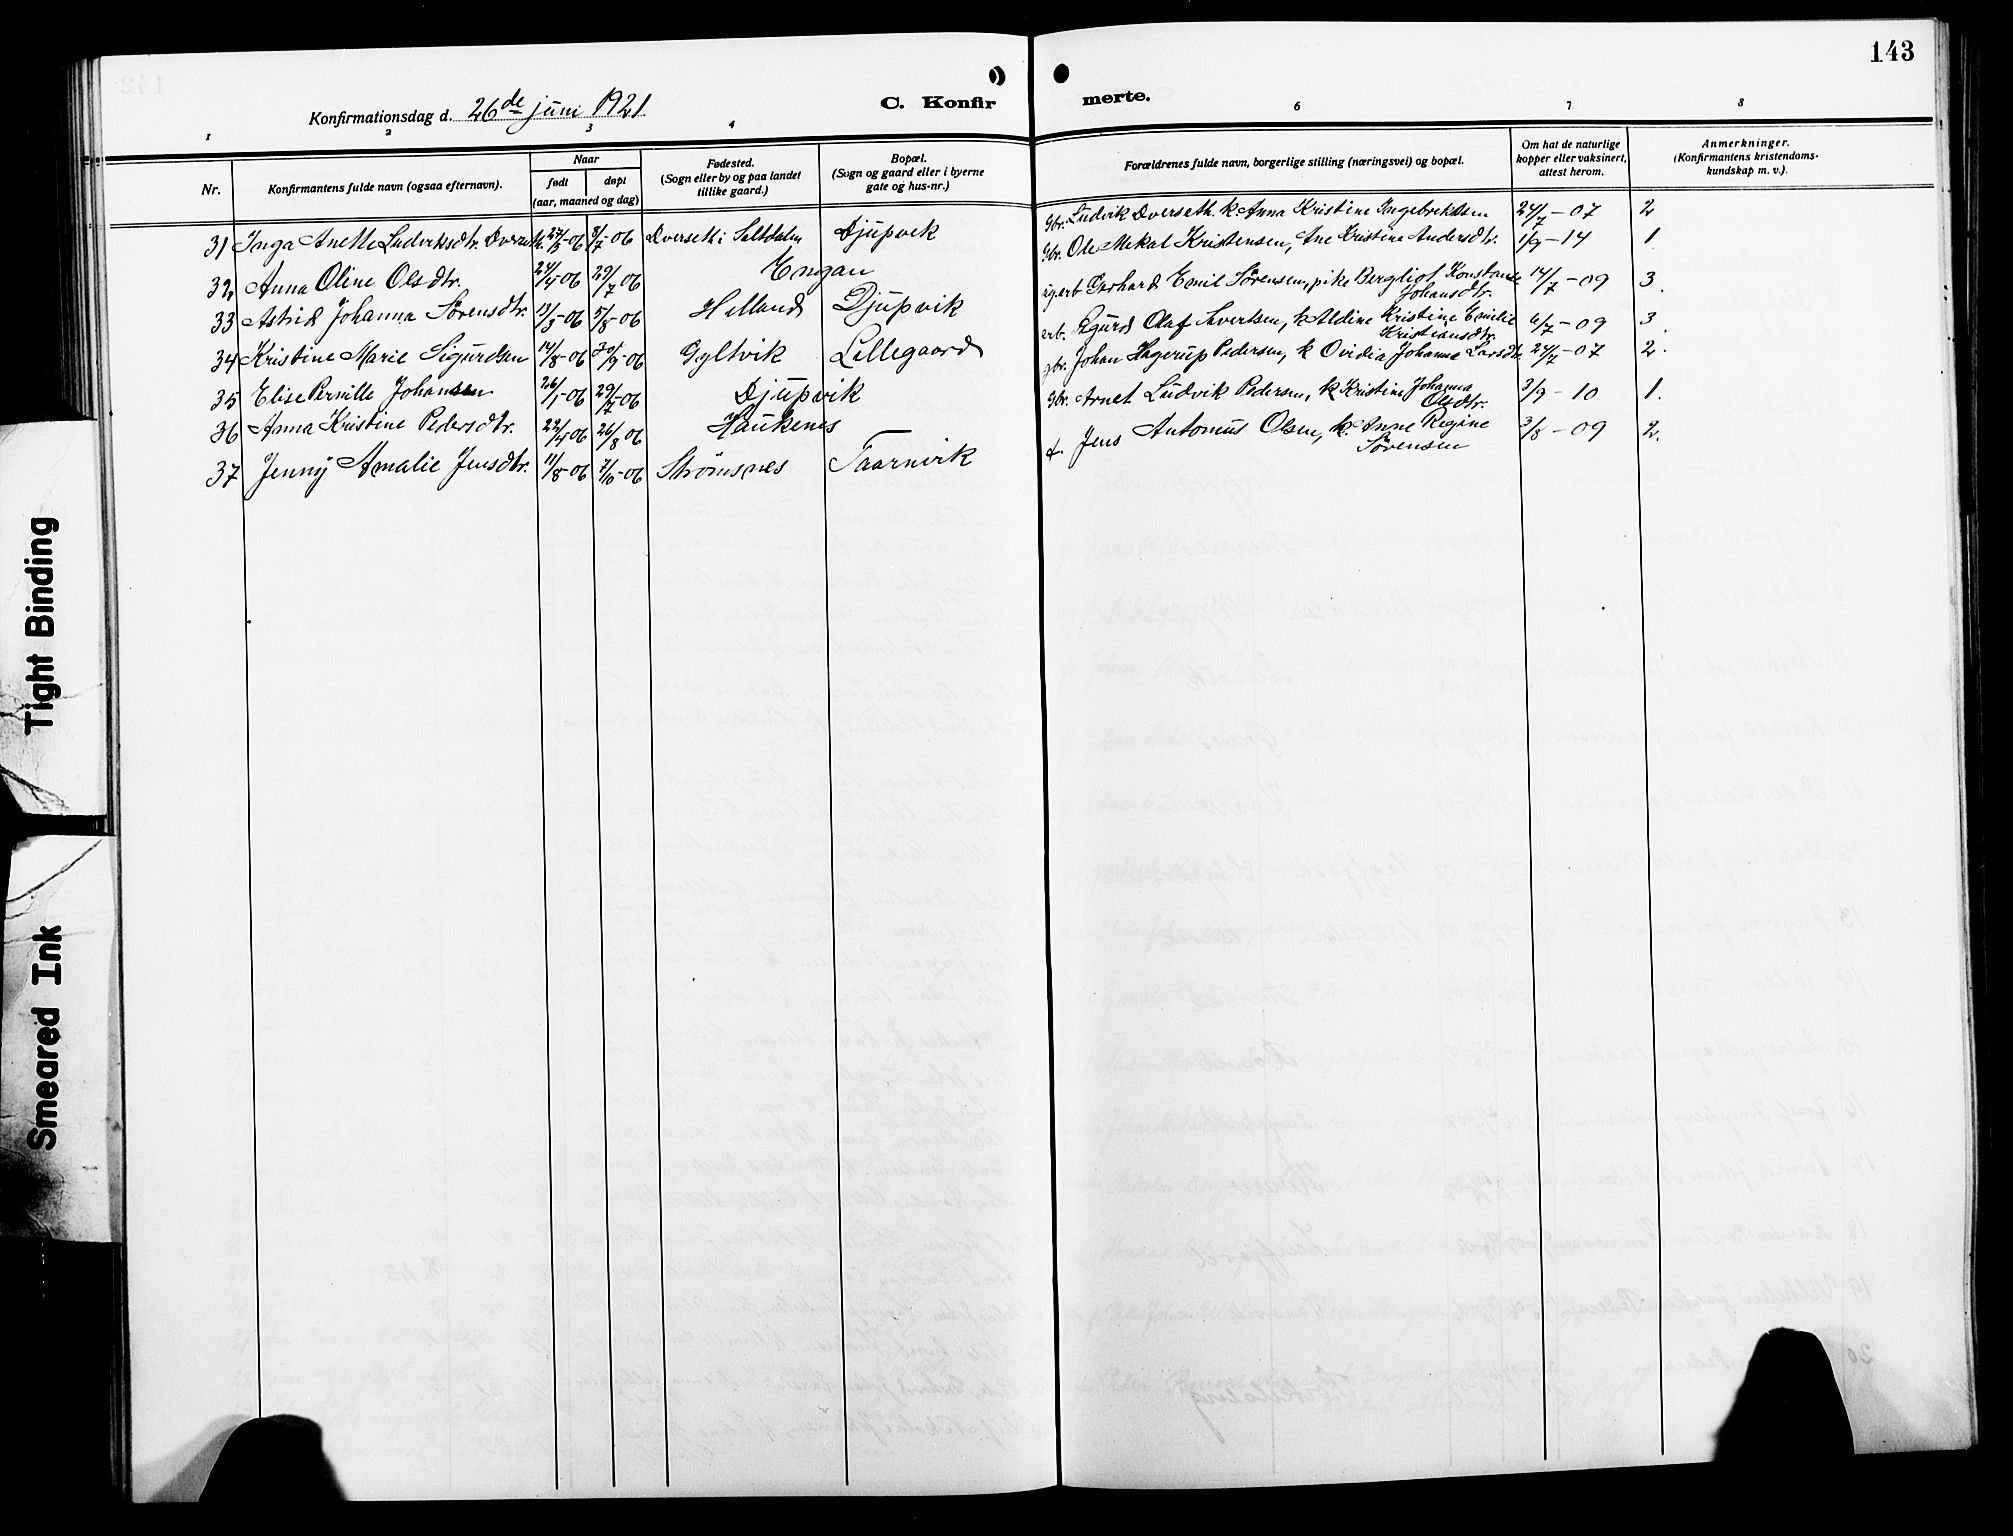 143
Konfirmationsdag d. 26de juni 1921
C. Konfir merte.
1 2 3 4 6 7 8
Nr.
Konfirmantens fulde navn (ogsaa efternavn).
Naar
født døpt
(aar, maaned og dag)
Fødested.
(Sogn eller by og paa landet
tillike gaard.)
Bopæl.
(Sogn og gaard eller i byerne
gate og hus-nr.)
Forældrenes fulde navn, borgerlige stilling (næringsvei) og bopæl.
Om hat de naturlige
kopper eller vaksinert,
attest herom.
Anmerkninger.
(Konfirmantens kristendoms-
kundskap m. v.).
31 Inga Anette Luderksdtr. 8/7-06 Dverseth i Saltdalen Djupvik Gbr. Ludvik Dverseth. k. Anna Kristine Ingebrektsen 24/7-07 2
32 Anna Oline Olsdtr. 24/4-06 29/7 06 Engan Gbr. Ole Mekal Kristensen, Ane Kristine Andersdtr. 1/9-14 1.
33 Astrid Johanna Sørensdtr. 13/3-06 5/8-06 Helland Djupvik Gerhard Emil Sørensen, pike Bergliot Konstanse Johansdtr. 14/7-09 3.
34 Kristine Marie Sigurdsen 14/8-06 30/9-06 Gyltvik Lillegaard arb. Sigurd Olaf Sivertsen, k Aldine Kristine Emilie Kristiansdtr. 6/7-09 3.
35 Elise Pernille Johansen 26/1-06 29/7-06 Djupvik gbr. Johan Hagerup Pedersen, k Ovidia Johanna Larsdtr. 24/7-07 2.
36 Anna Kristine Pedersdtr. 22/4 06 26/8 06 Haukenes Gbr. Arnet Ludvik Pedersen, k Kristine Johanna Olsdtr. 3/9-10 1.
37 Jenny Amalie Jensdtr. 11/8-06 7/10-06 Strømsnes Taarnvik f. Jens Antonius Olsen, k. Anne Regine Sørensen 3/8-09 2.
Tight Binding
Smeared Ink